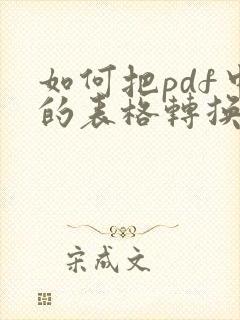 如何把pdf中
的表格轉換
宋成文